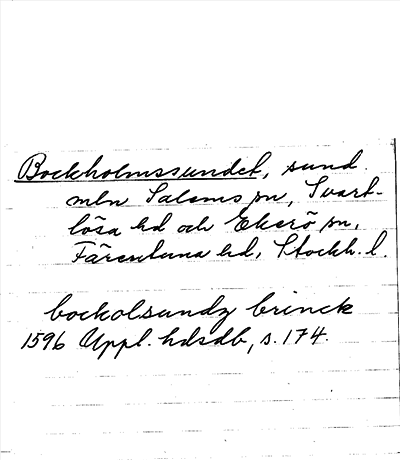 Bockholmssundet, sund.
mln Salems sn, Svart-
lösa hd och Ekerö sn,
Färentuna hd, Stockh. l.
bockolsundz brinck
1596 Uppl. hdsdb, s. 174.